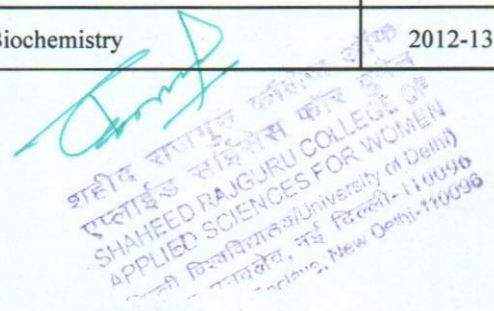 Biochemistry 2012-13
शहीद राजगुरु कॉलेज ऑफ
एप्लाईड साईंसेस फॉर वूमेन
SHAHEED RAJGURU COLLEGE OF
APPLIED SCIENCES FOR WOMEN
विश्वविद्यालय/University of Delhi)
नई दिल्ली-110096
New Delhi-110096